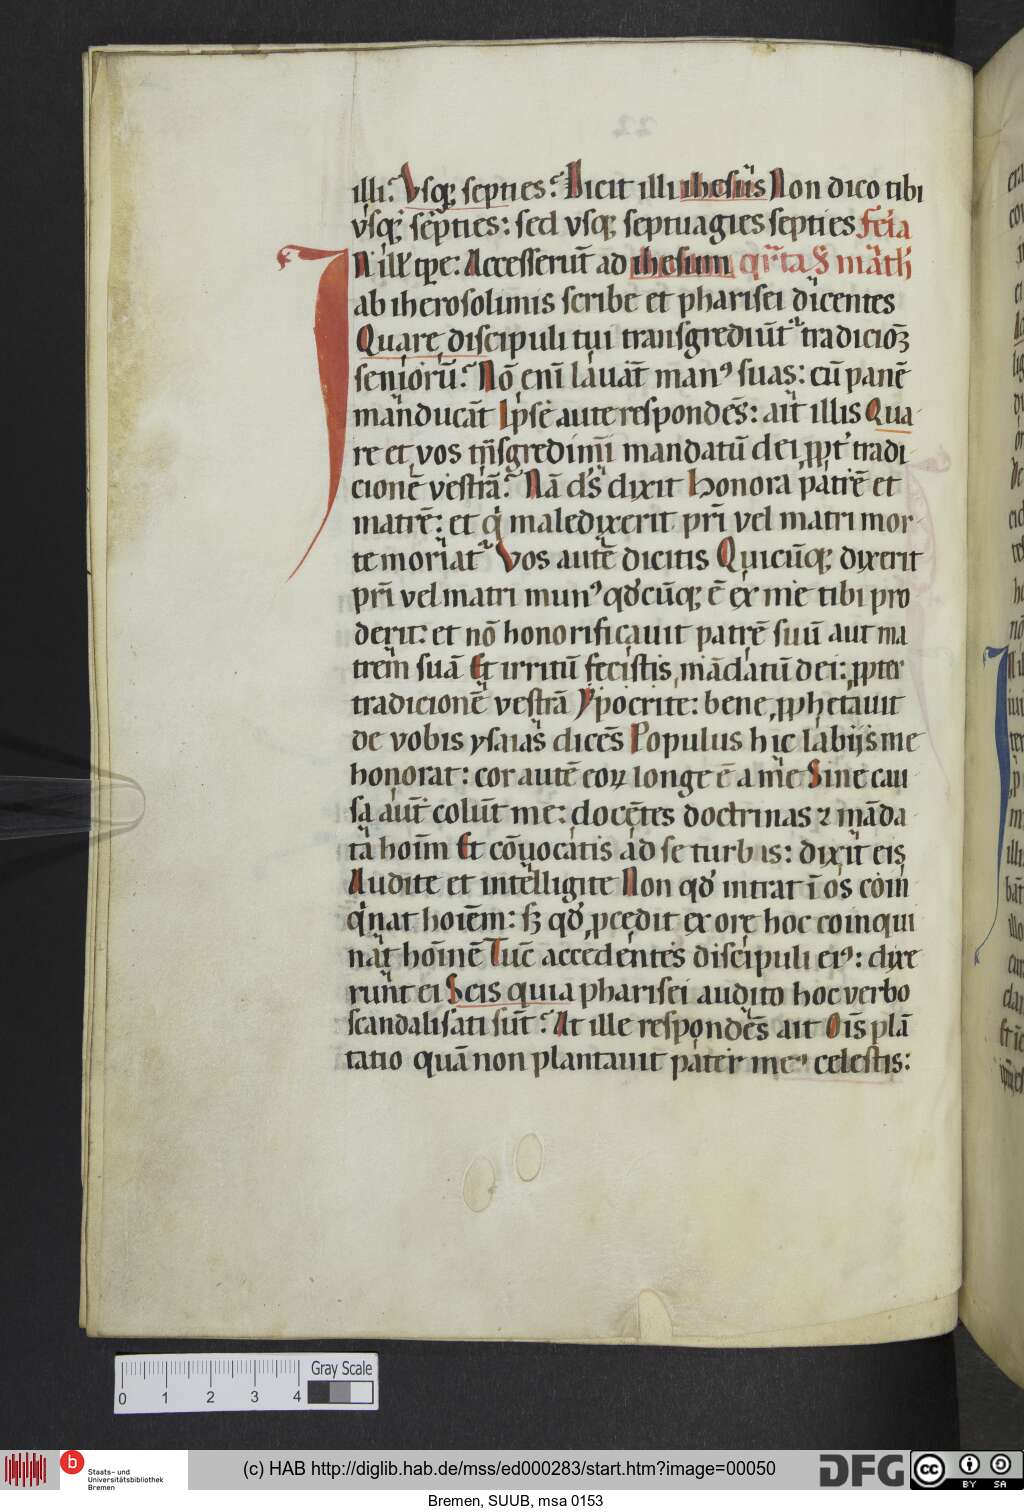 illi. Vsq; septies? Dicit illi ihesus Non dico tibi
vsq; septies: sed vsq; septuagies septies Feia
N ill' tp̄e: Accesserūt ad ihesum qr̄ta S math
ab iherosolimis scribe et pharisei dicentes
Quare discipuli tui transgrediūt' tradicioꝫ
senioꝛū? Nō enī lauāt manꝰ suas: cū panē
manducāt Ipse aute respondēs: ait illis Qua
re et vos trāsgredimi mandatū dei ꝓpt' tradi
cionē vestrā? Nā ds̄ dixit Honora patrē et
matrē: et qi maledixerit pr̄i vel matri mor
te moriat' Vos autē dicitis Quicūq; dixerit
pr̄i vel matri munꝰ qđcūq; ē ex me tibi pro
derit: et nō honorificauit patrē suū aut ma
trem suā Et irritū fecistis mādatū dei: ꝓpter
tradicionē vestrā Ypocrite: bene ꝓphetauit
de vobis ysaias dicēs Populus hic labijs me
honorat: cor autē eoꝝ longe ē a me Sine cau
sa aut̄ colūt me: docētes doctrinas ⁊ māda
ta hoīm Et cōuocatis ad se turbis: dixit eis
Audite et intelligite Non qđ intrat ī os coin
qinat hoīem: sꝫ qđ ꝓcedit ex ore hoc coinqui
nat hoīnē Tūc accedentes discipuli eiꝰ: dixe
runt ei Scis quia pharisei audito hoc verbo
scandalisati sūt? At ille respondēs ait Oīs plā
tatio quā non plantauit pater meꝰ celestis:
Gray Scale
0 1 2 3 4
b
Staats- und
Universitätsbibliothek
Bremen
(c) HAB http://diglib.hab.de/mss/ed000283/start.htm?image=00050
DFG
cc BY SA
Bremen, SUUB, msa 0153